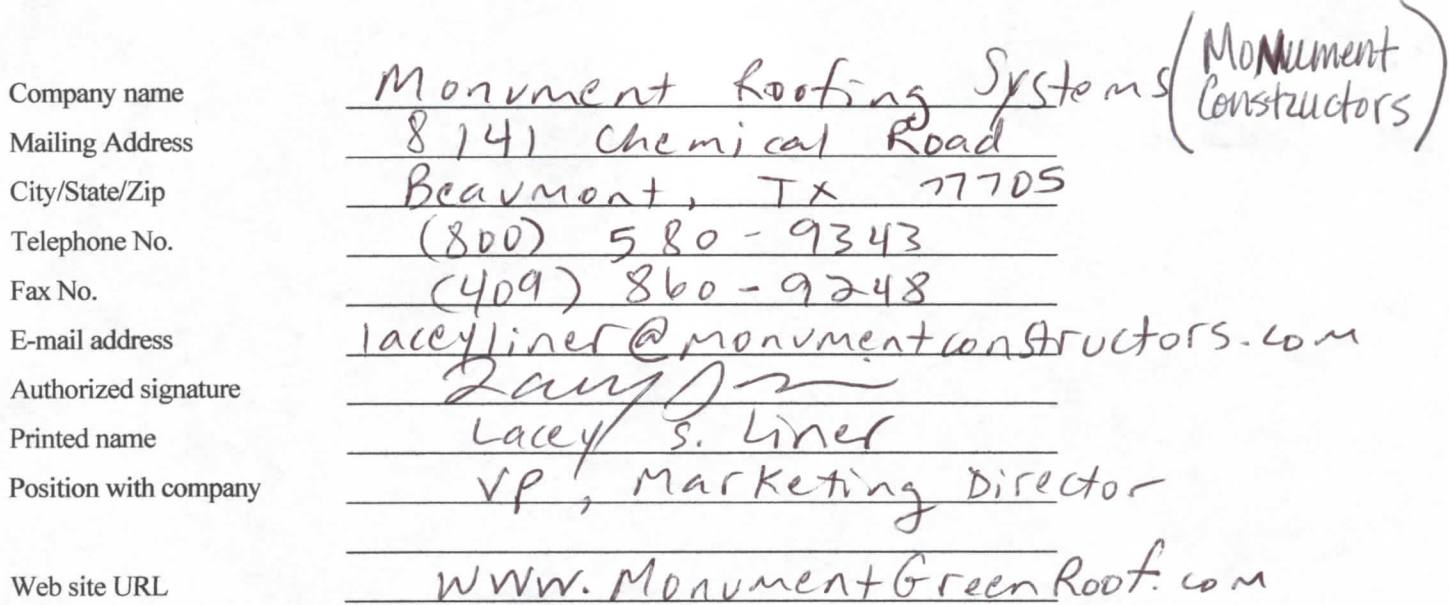 Company name Monument Roofing Systems (Monument Constructors)
Mailing Address 8141 Chemical Road
City/State/Zip Beaumont, TX 77705
Telephone No. (800) 580-9343
Fax No. (409) 860-9248
E-mail address laceyliner@monumentconstructors.com
Authorized signature
Printed name Lacey S. Liner
Position with company VP, Marketing Director
Web site URL www.MonumentGreenRoof.com